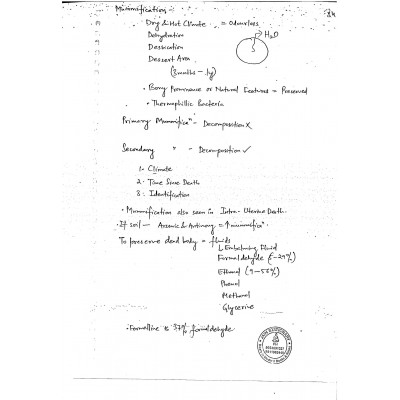 Mummification:-
Dry & Hot Climate = Odourless
Dehydration
H2O
Desiccation
Dessert Area
(3 months - 1y)
• Bony Prominence or Natural Features = Preserved
• Thermophillic Bacteria
Primary Mummifican - Decomposition X
Secondary " - Decomposition ✓
1. Climate
2. Time Since Death
3. Identification
• Mummification also seen in Intra-Uterine Death.
• If soil - Arsenic & Antimony = ↑ mummifican
To preserve dead body = fluids
Embalming Fluid
Formaldehyde (5-29%)
Ethanol (9-56%)
Phenol
Methanol
Glycerine
• Formalline is 37% formaldehyde